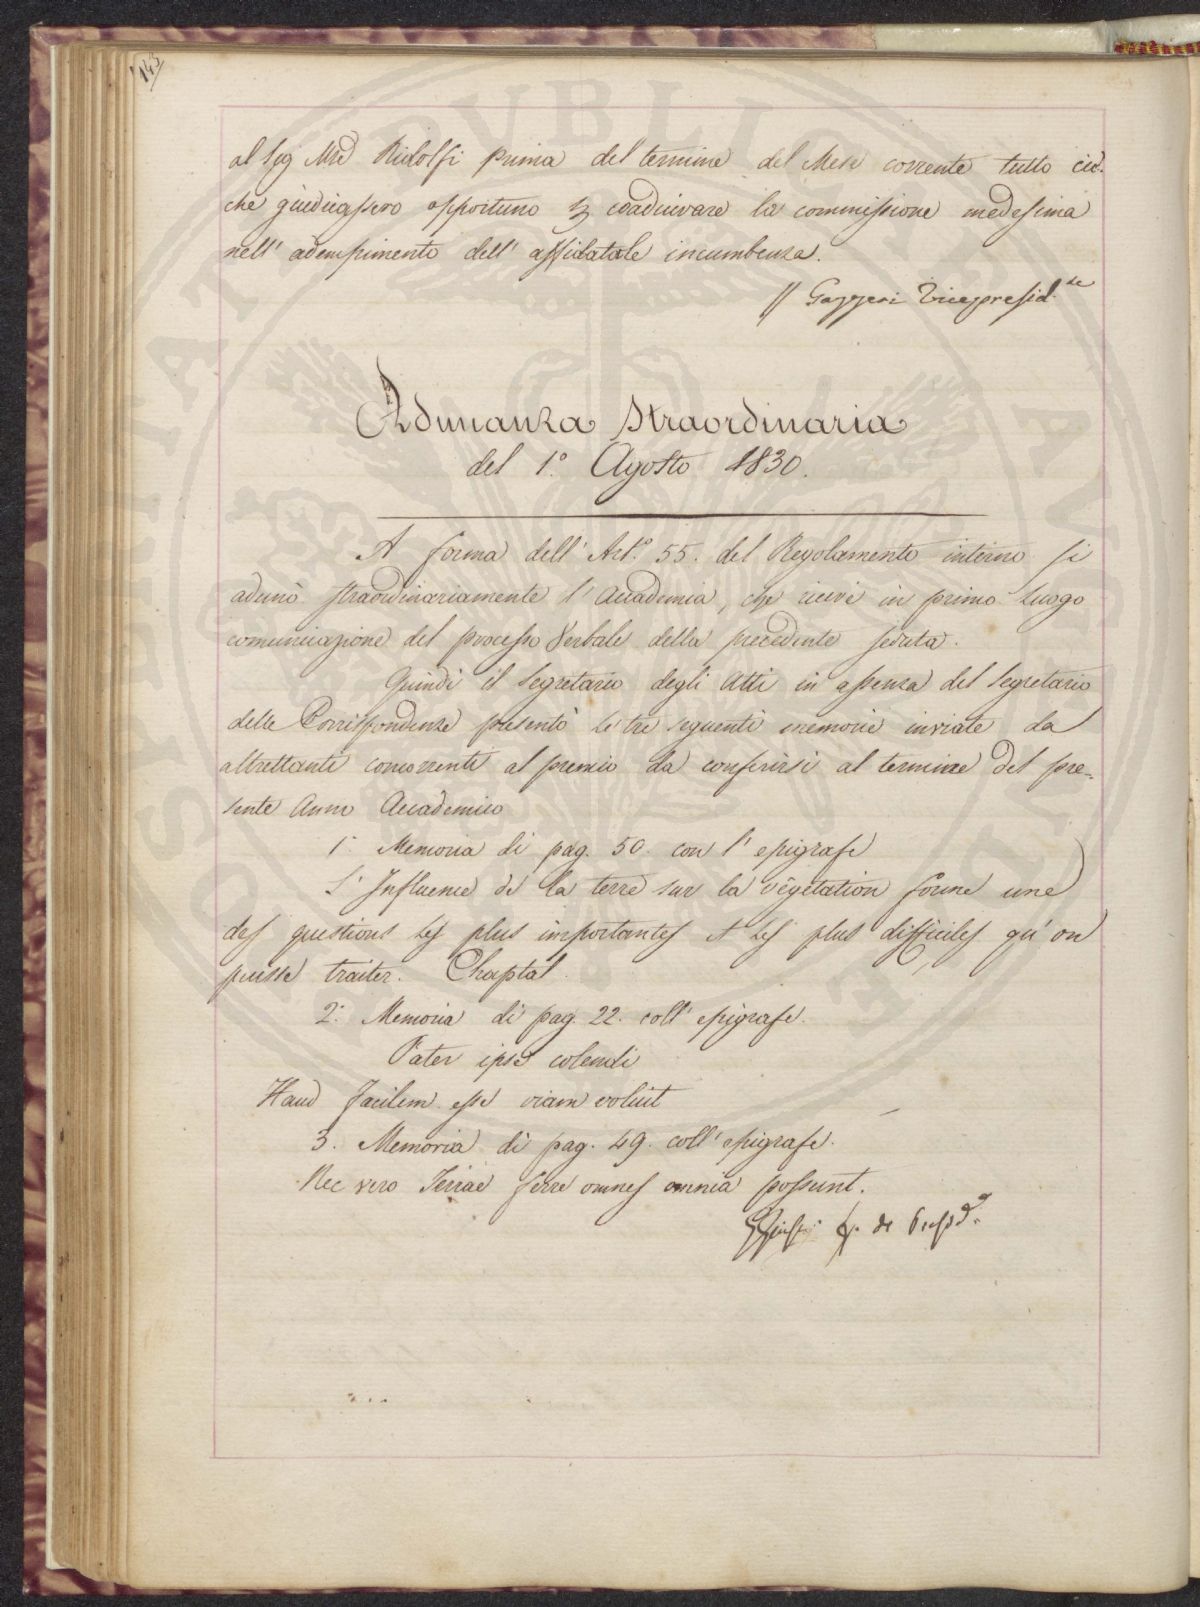 143
al Sig Mse Ridolfi prima del termine del Mese corrente tutto ciò
che giudicassero opportuno p coadiuvare la commissione medesima
nell' adempimento dell' affidatale incumbenza.
Gazzeri Vicepresid.te
Adunanza Straordinaria
del 1.° Agosto 1830.
A forma dell' Art.° 55. del Regolamento interno si
adunò straordinariamente l' Accademia, che ricevè in primo luogo
comunicazione del processo Verbale della precedente seduta.
Quindi il Segretario degli Atti in assenza del Segretario
delle Corrispondenze presentò le tre seguenti memorie inviate da
altrettanti concorrenti al premio da conferirsi al termine del pre=
sente Anno Accademico
1.° Memoria di pag. 50. con l' epigrafe
L' Influence de la terre sur la végetation forme une
des questions les plus importantes et les plus difficiles qu' on
puisse traiter. Chaptal.
2.° Memoria di pag. 22. coll' epigrafe.
Pater ipse colendi
Haud facilem esse viam voluit
3. Memoria di pag. 49. coll' epigrafe.
Nec vero Terrae ferre omnes omnia possunt.